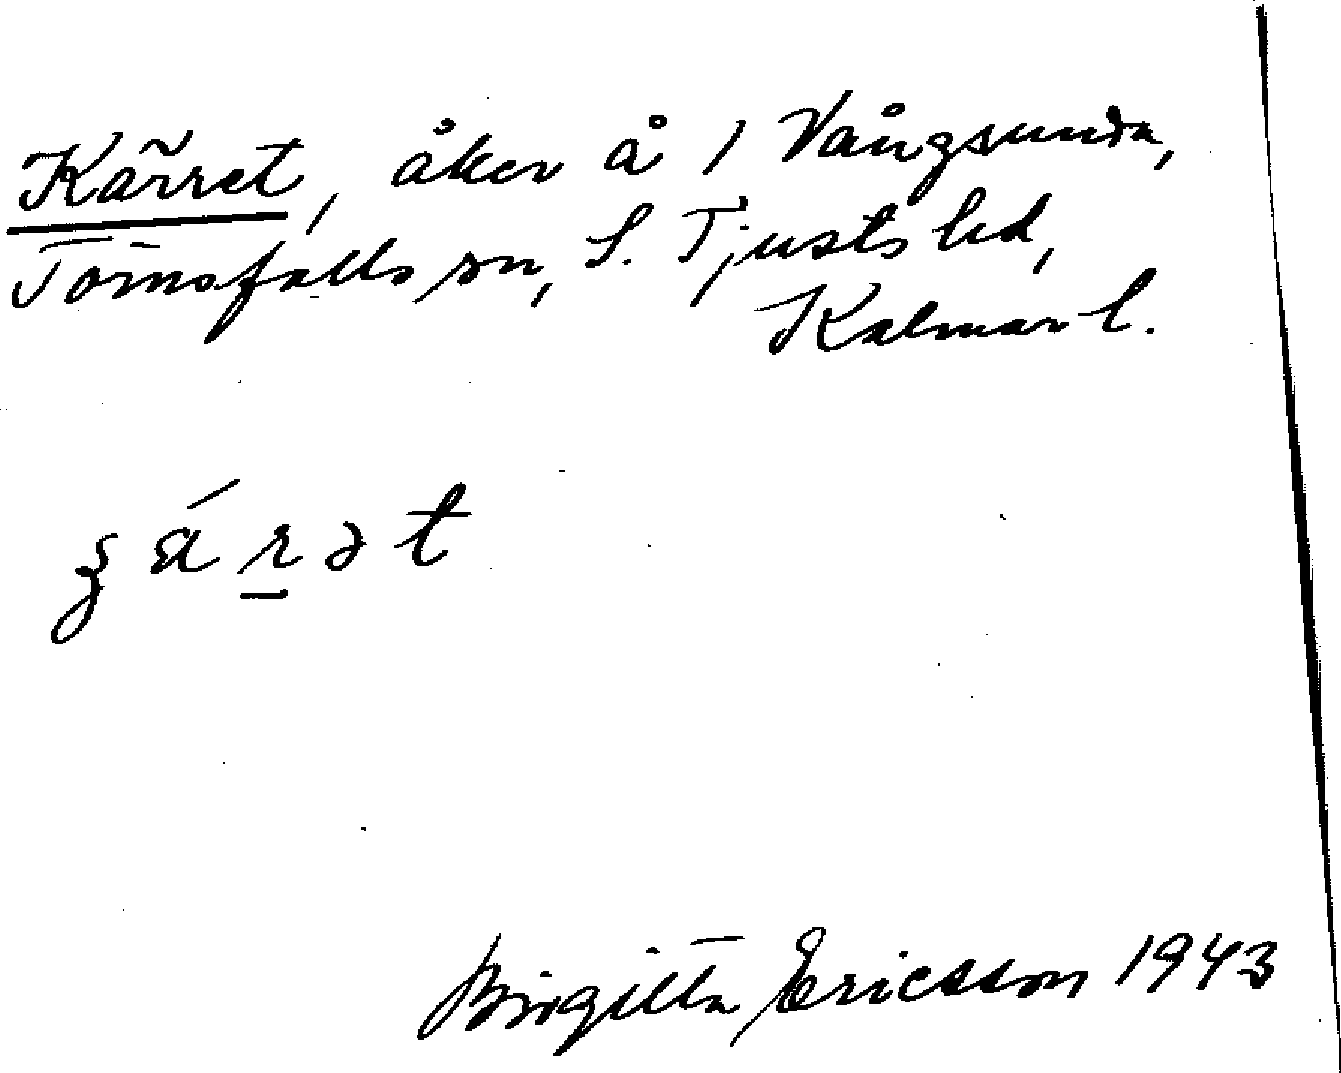 Kärret, åker å 1 Vångsunda,
Törnsfalls sn, S. Tjusts hd,
Kalmar l.
ʂárət
Birgitta Ericsson 1943